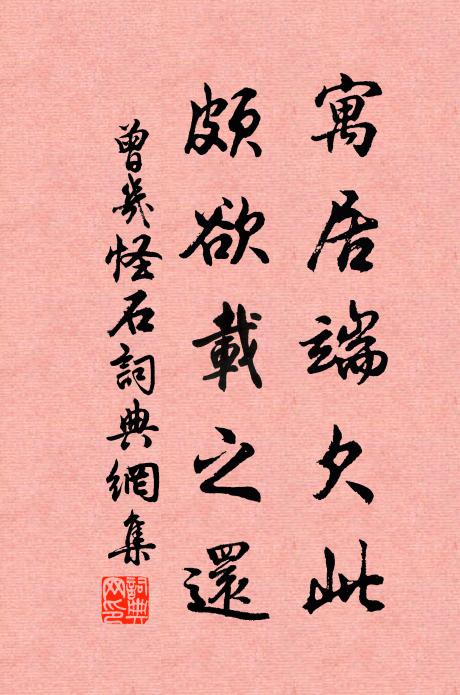 寓居端欠此
頗欲載之還
曾幾怪石詞典網集
詞典網印